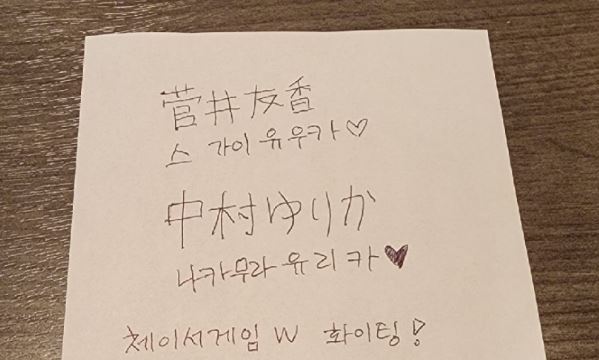 菅井友香
스가이 유우카♡
中村ゆりか
나카무라 유리카♥
체이서게임 W 화이팅!